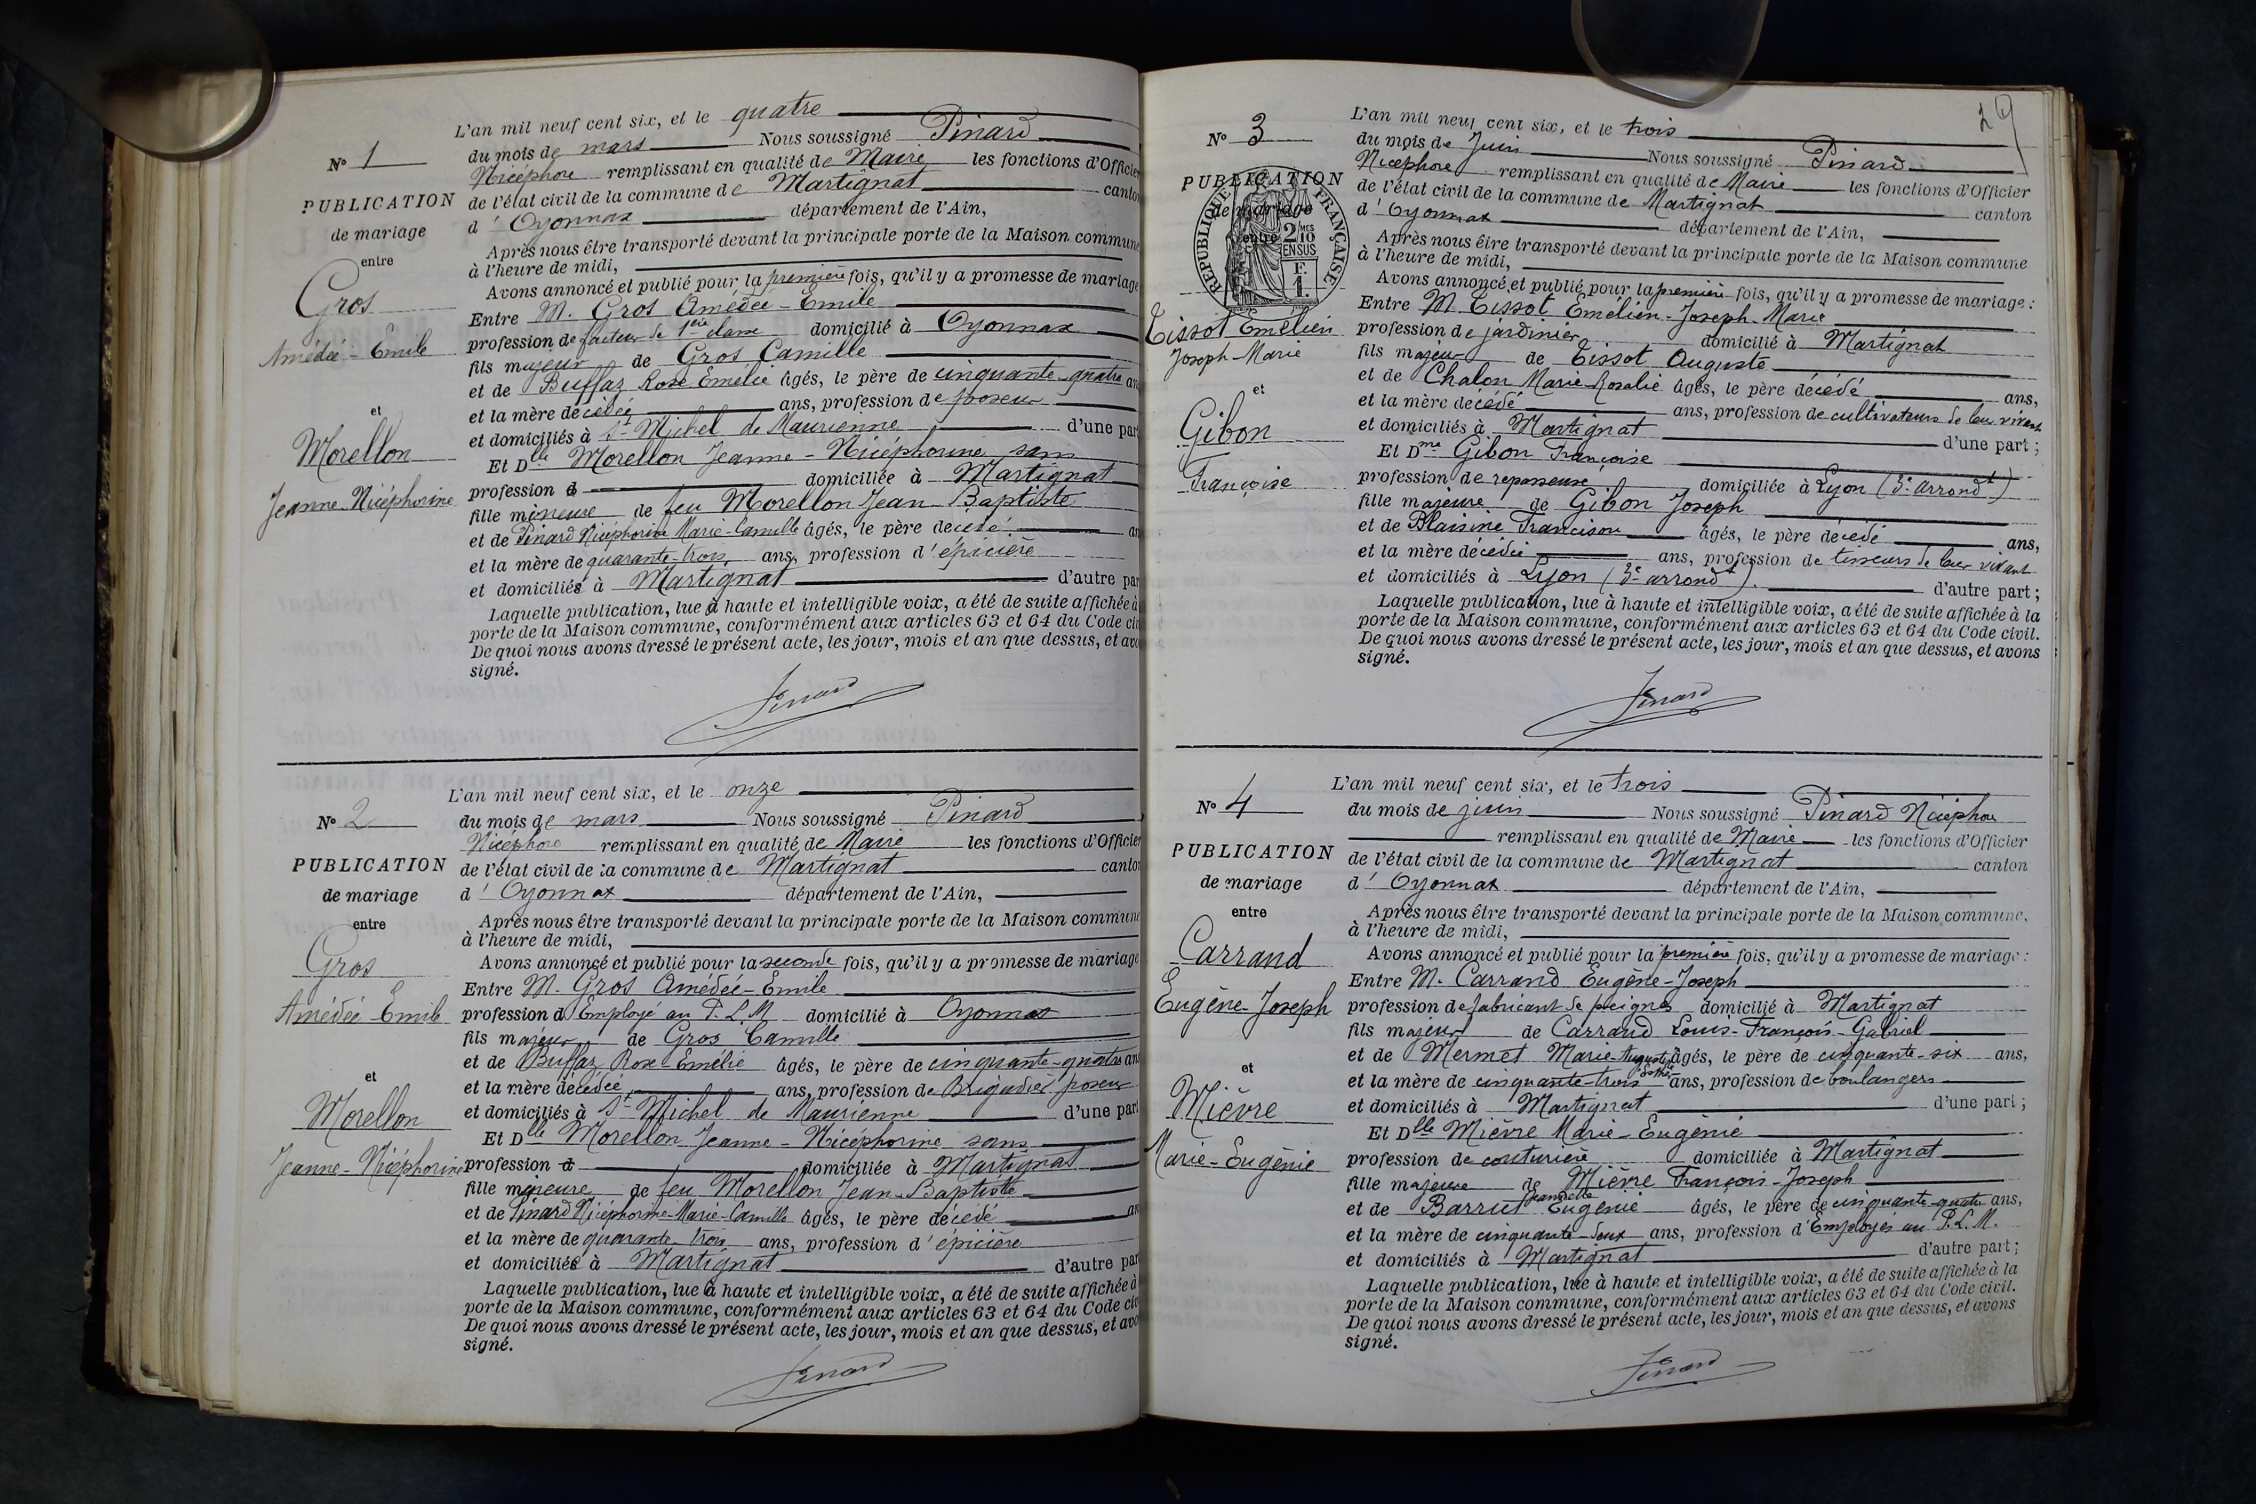 L'an mil neuf cent six, et le quatre
du mois de mars Nous soussigné Pinard
Nicéphore remplissant en qualité de Maire les fonctions d'Officier
de l'état civil de la commune de Martignat canton
d'Oyonnax département de l'Ain,
Après nous être transporté devant la principale porte de la Maison commune
à l'heure de midi,
Avons annoncé et publié pour la première fois, qu'il y a promesse de mariage
Entre M. Gros Amédée-Emile
profession de facteur de 1ère classe domicilié à Oyonnax
fils majeur de Gros Camille
et de Buffaz Rose Emélie âgés, le père de cinquante-quatre an
et la mère décédée ans, profession de poseur
et domiciliés à St Michel de Maurienne d'une par
Et Dlle Morellon Jeanne-Nicéphorine sans
profession d domiciliée à Martignat
fille mineure de feu Morellon Jean-Baptiste
et de Pinard Nicéphorine Marie-Camille âgés, le père décédé an
et la mère de quarante-trois ans, profession d'épicière
et domiciliés à Martignat d'autre par
Laquelle publication, lue à haute et intelligible voix, a été de suite affichée à
porte de la Maison commune, conformément aux articles 63 et 64 du Code civ
De quoi nous avons dressé le présent acte, les jour, mois et an que dessus, et avo
signé.
Pinard
N° 1
PUBLICATION
de mariage
entre
Gros
Amédée-Emile
et
Morellon
Jeanne-Nicéphorine
L'an mil neuf cent six, et le onze
du mois de mars Nous soussigné Pinard
Nicéphore remplissant en qualité de Maire les fonctions d'Officier
de l'état civil de la commune de Martignat canton
d'Oyonnax département de l'Ain,
Après nous être transporté devant la principale porte de la Maison commune
à l'heure de midi,
Avons annoncé et publié pour la seconde fois, qu'il y a promesse de mariage
Entre M. Gros Amédée-Emile
profession d Employé au P.L.M domicilié à Oyonnax
fils majeur de Gros Camille
et de Buffaz Rose-Emélie âgés, le père de cinquante-quatre ans
et la mère décédée ans, profession de Brigadier poseur
et domiciliés à St Michel de Maurienne d'une part
Et Dlle Morellon Jeanne-Nicéphorine sans
profession d domiciliée à Martignat
fille mineure de feu Morellon Jean-Baptiste
et de Pinard Nicéphorine-Marie-Camille âgés, le père décédé an
et la mère de quarante-trois ans, profession d'épicière
et domiciliés à Martignat d'autre par
Laquelle publication, lue à haute et intelligible voix, a été de suite affichée à
porte de la Maison commune, conformément aux articles 63 et 64 du Code civ
De quoi nous avons dressé le présent acte, les jour, mois et an que dessus, et avo
signé.
Pinard
N° 2
PUBLICATION
de mariage
entre
Gros
Amédée-Emile
et
Morellon
Jeanne-Nicéphorine
29
L'an mil neuf cent six, et le trois
du mois de Juin Nous soussigné Pinard
Nicéphore remplissant en qualité de Maire les fonctions d'Officier
de l'état civil de la commune de Martignat canton
d'Oyonnax département de l'Ain,
Après nous être transporté devant la principale porte de la Maison commune
à l'heure de midi,
Avons annoncé et publié pour la première fois, qu'il y a promesse de mariage :
Entre M. Tissot Emélien-Joseph-Marie
profession de jardinier domicilié à Martignat
fils majeur de Tissot Auguste
et de Chalon Marie-Rosalie âgés, le père décédé ans,
et la mère décédé ans, profession de cultivateurs de leur vivant
et domiciliés à Martignat d'une part ;
Et Dme Gibon Françoise
profession de repasseuse domiciliée à Lyon (3e arrondt)
fille majeure de Gibon Joseph
et de Blaisine Francison âgés, le père décédé ans,
et la mère décédée ans, profession de tisseurs de leur vivant
et domiciliés à Lyon (3e arrondt). d'autre part ;
Laquelle publication, lue à haute et intelligible voix, a été de suite affichée à la
porte de la Maison commune, conformément aux articles 63 et 64 du Code civil.
De quoi nous avons dressé le présent acte, les jour, mois et an que dessus, et avons
signé.
Pinard
N° 3
PUBLICATION
de mariage
entre
RÉPUBLIQUE FRANÇAISE
2 MES 10
EN SUS
F.
1.
Tissot Emélien
Joseph-Marie
et
Gibon
Françoise
L'an mil neuf cent six, et le trois
du mois de juin Nous soussigné Pinard Nicéphore
remplissant en qualité de Maire les fonctions d'Officier
de l'état civil de la commune de Martignat canton
d'Oyonnax département de l'Ain,
Après nous être transporté devant la principale porte de la Maison commune,
à l'heure de midi,
Avons annoncé et publié pour la première fois, qu'il y a promesse de mariage :
Entre M. Carrand Eugène-Joseph
profession de fabricant de peignes domicilié à Martignat
fils majeur de Carrand Louis-François-Gabriel
et de Mermet Marie-Augustine Esther âgés, le père de cinquante-six ans,
et la mère de cinquante-trois ans, profession de boulangers
et domiciliés à Martignat d'une part ;
Et Dlle Mièvre Marie-Eugénie
profession de couturière domiciliée à Martignat
fille majeure de Mièvre François-Joseph
et de Barrut Jeannette Eugénie âgés, le père de cinquante-quatre ans,
et la mère de cinquante-deux ans, profession d'Employés au P.L.M.
et domiciliés à Martignat d'autre part ;
Laquelle publication, lue à haute et intelligible voix, a été de suite affichée à la
porte de la Maison commune, conformément aux articles 63 et 64 du Code civil.
De quoi nous avons dressé le présent acte, les jour, mois et an que dessus, et avons
signé.
Pinard
N° 4
PUBLICATION
de mariage
entre
Carrand
Eugène-Joseph
et
Mièvre
Marie-Eugénie